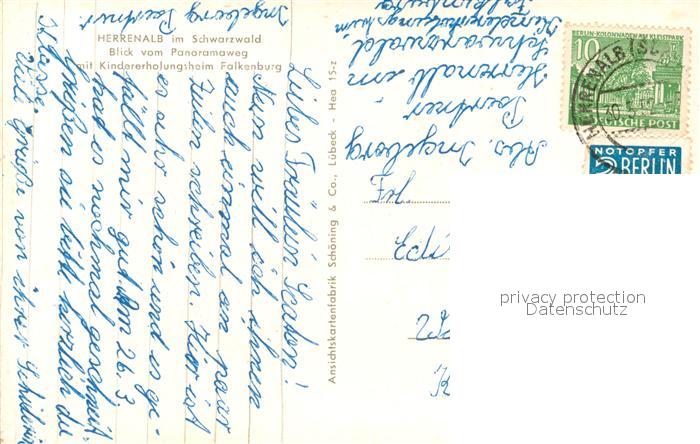 HERRENALB im Schwarzwald
Blick vom Panoramaweg
mit Kindererholungsheim Falkenburg
Liebes Fräulein
Nun will ich ihnen
auch einmal ein paar
Zeilen schreiben. Hier ist
es sehr schön und es ge-
fällt mir gut. Am 26. 3
hat es nochmal geschneit.
Grüßen sie bitte herzlich die
Klasse.
Viele Grüße von ihrer Schülerin
Ingeborg
Ansichtskartenfabrik Schöning & Co., Lübeck - Hea 15-z
Abs. Ingeborg
Herrenalb im
Schwarzwald
Kindererholungsheim
Falkenburg
BERLIN-KOLONNADEN AM KLEISTPARK
10
DEUTSCHE POST
HERRENALB
NOTOPFER
2 BERLIN
privacy protection
Datenschutz